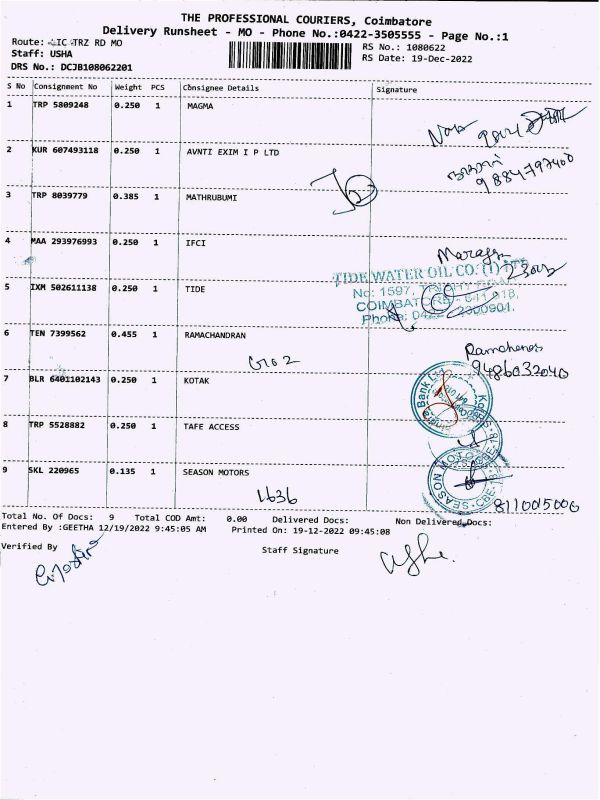 THE PROFESSIONAL COURIERS, Coimbatore
Delivery Runsheet - MO - Phone No.:0422-3505555 - Page No.:1
Route: LIC TRZ RD MO
RS No.: 1080622
Staff: USHA
RS Date: 19-Dec-2022
DRS No.: DCJB108062201
S No Consignment No Weight PCS Consignee Details Signature
1 TRP 5809248 0.250 1 MAGMA
2 KUR 607493118 0.250 1 AVNTI EXIM I P LTD
9884797400
3 TRP 8039779 0.385 1 MATHRUBUMI
4 MAA 293976993 0.250 1 IFCI
TIDE WATER OIL CO. (I) LTD
5 IXM 502611138 0.250 1 TIDE
No: 1597,
COIMBATORE - 641 018.
Phone: 0422 - 2300901.
6 TEN 7399562 0.455 1 RAMACHANDRAN
9486032040
7 BLR 6401102143 0.250 1 KOTAK
8 TRP 5528882 0.250 1 TAFE ACCESS
9 SKL 220965 0.135 1 SEASON MOTORS
1636
SEASON MOTORS
8110015000
Total No. Of Docs: 9 Total COD Amt: 0.00 Delivered Docs: Non Delivered Docs:
Entered By :GEETHA 12/19/2022 9:45:05 AM Printed On: 19-12-2022 09:45:08
Verified By Staff Signature